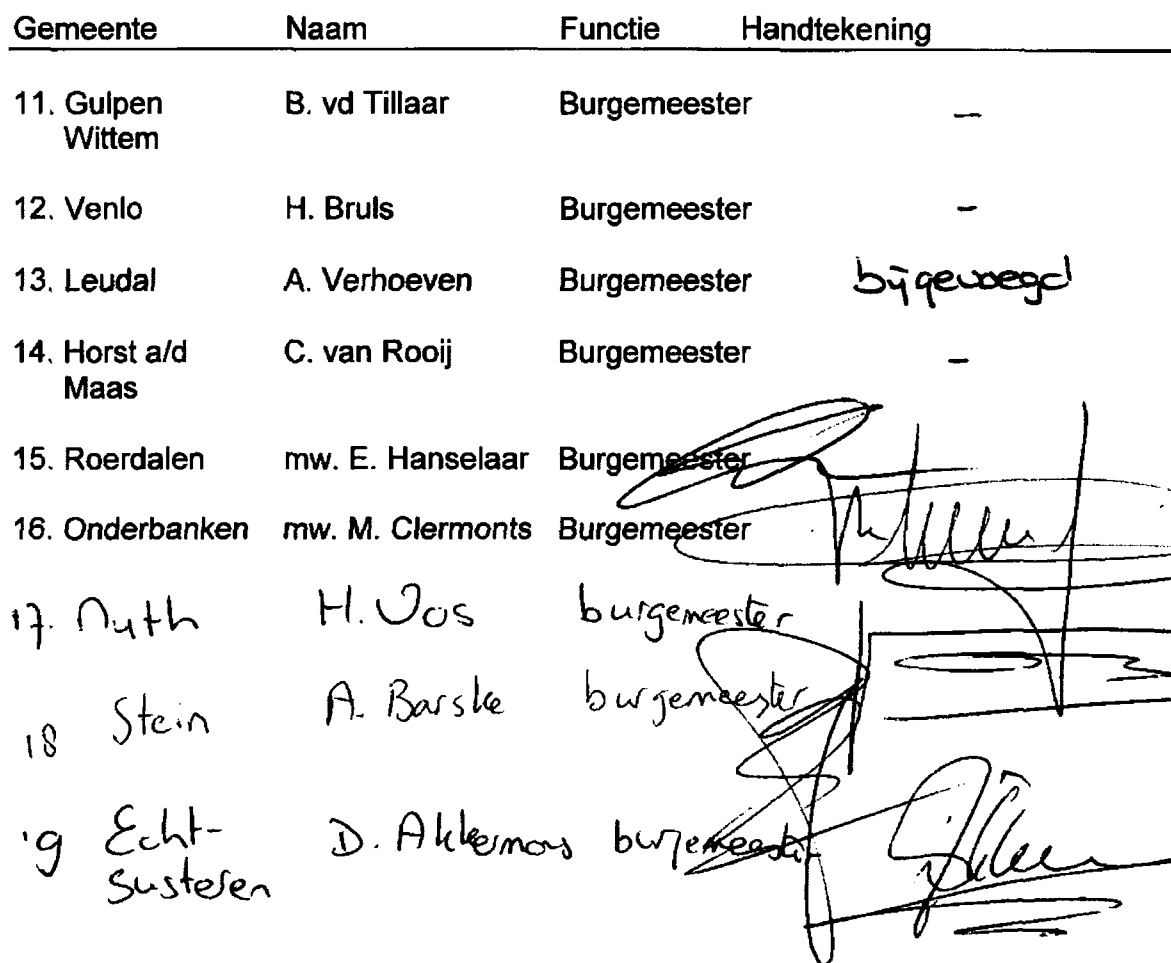 Gemeente Naam Functie Handtekening
11. Gulpen B. vd Tillaar Burgemeester –
Wittem
12. Venlo H. Bruls Burgemeester –
13. Leudal A. Verhoeven Burgemeester bijgevoegd
14. Horst a/d C. van Rooij Burgemeester –
Maas
15. Roerdalen mw. E. Hanselaar Burgemeester
16. Onderbanken mw. M. Clermonts Burgemeester
17. Nuth H. Vos burgemeester
18 Stein A. Barske burgemeester
19 Echt- D. Akkermans burgemeester
Susteren